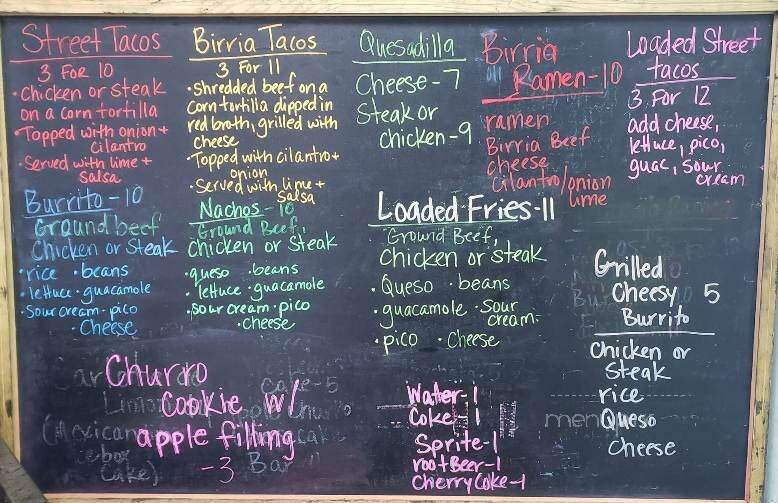 Street Tacos
3 For 10
• Chicken or steak
on a corn tortilla
• Topped with onion +
Cilantro
• Served with lime +
Salsa
Birria Tacos
3 For 11
• Shredded beef on a
Corn tortilla dipped in
red broth, grilled with
cheese
• Topped with cilantro +
onion
• Served with lime +
Salsa
Quesadilla
Cheese - 7
Steak or
chicken - 9
Birria
Ramen - 10
ramen
Birria Beef
cheese
cilantro/onion
lime
Loaded Street
tacos
3 For 12
add cheese,
lettuce, pico,
guac, Sour
cream
Burrito - 10
Ground beef
Chicken or Steak
• rice • beans
• lettuce • guacamole
• Sour cream • pico
• Cheese
Nachos - 10
Ground Beef,
Chicken or Steak
• queso • beans
• lettuce • guacamole
• sour cream • pico
• cheese
Loaded Fries - 11
Ground Beef,
Chicken or Steak
• Queso • beans
• guacamole • Sour
cream
• pico • Cheese
Grilled
Cheesy 5
Burrito
Chicken or
Steak
rice
Queso
Cheese
Churro
Cookie w/
apple filling
- 3
Water - 1
Coke - 1
Sprite - 1
root Beer - 1
Cherry Coke - 1